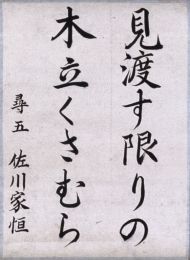 見渡す限りの
木立くさむら
尋五 佐川家恒